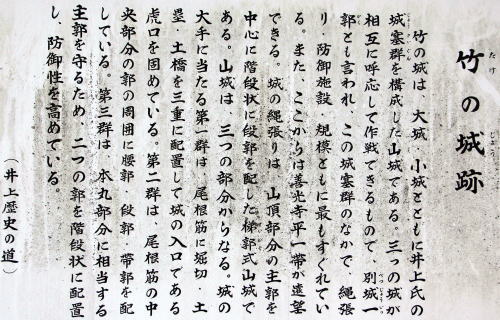 竹の城跡
竹の城は、大城・小城とともに井上氏の
城塞群を構成した山城である。三つの城が
相互に呼応して作戦できるもので、別城一
郭とも言われ、この城塞群のなかで、縄張
り・防御施設・規模ともに最もすぐれてい
る。また、ここからは善光寺平一帯が遠望
できる。城の縄張りは、山頂部分の主郭を
中心に階段状に段郭を配した梯郭式山城で
ある。山城は、三つの部分からなる。城の
大手に当たる第一群は、尾根筋に堀切・土
塁・土橋を三重に配置して城の入口である
虎口を固めている。第二群は、尾根筋の中
央部分の郭の周囲に腰郭・段郭・帯郭を配
している。第三群は、本丸部分に相当する
主郭を守るため、二つの郭を階段状に配置
し、防御性を高めている。
（井上歴史の道）